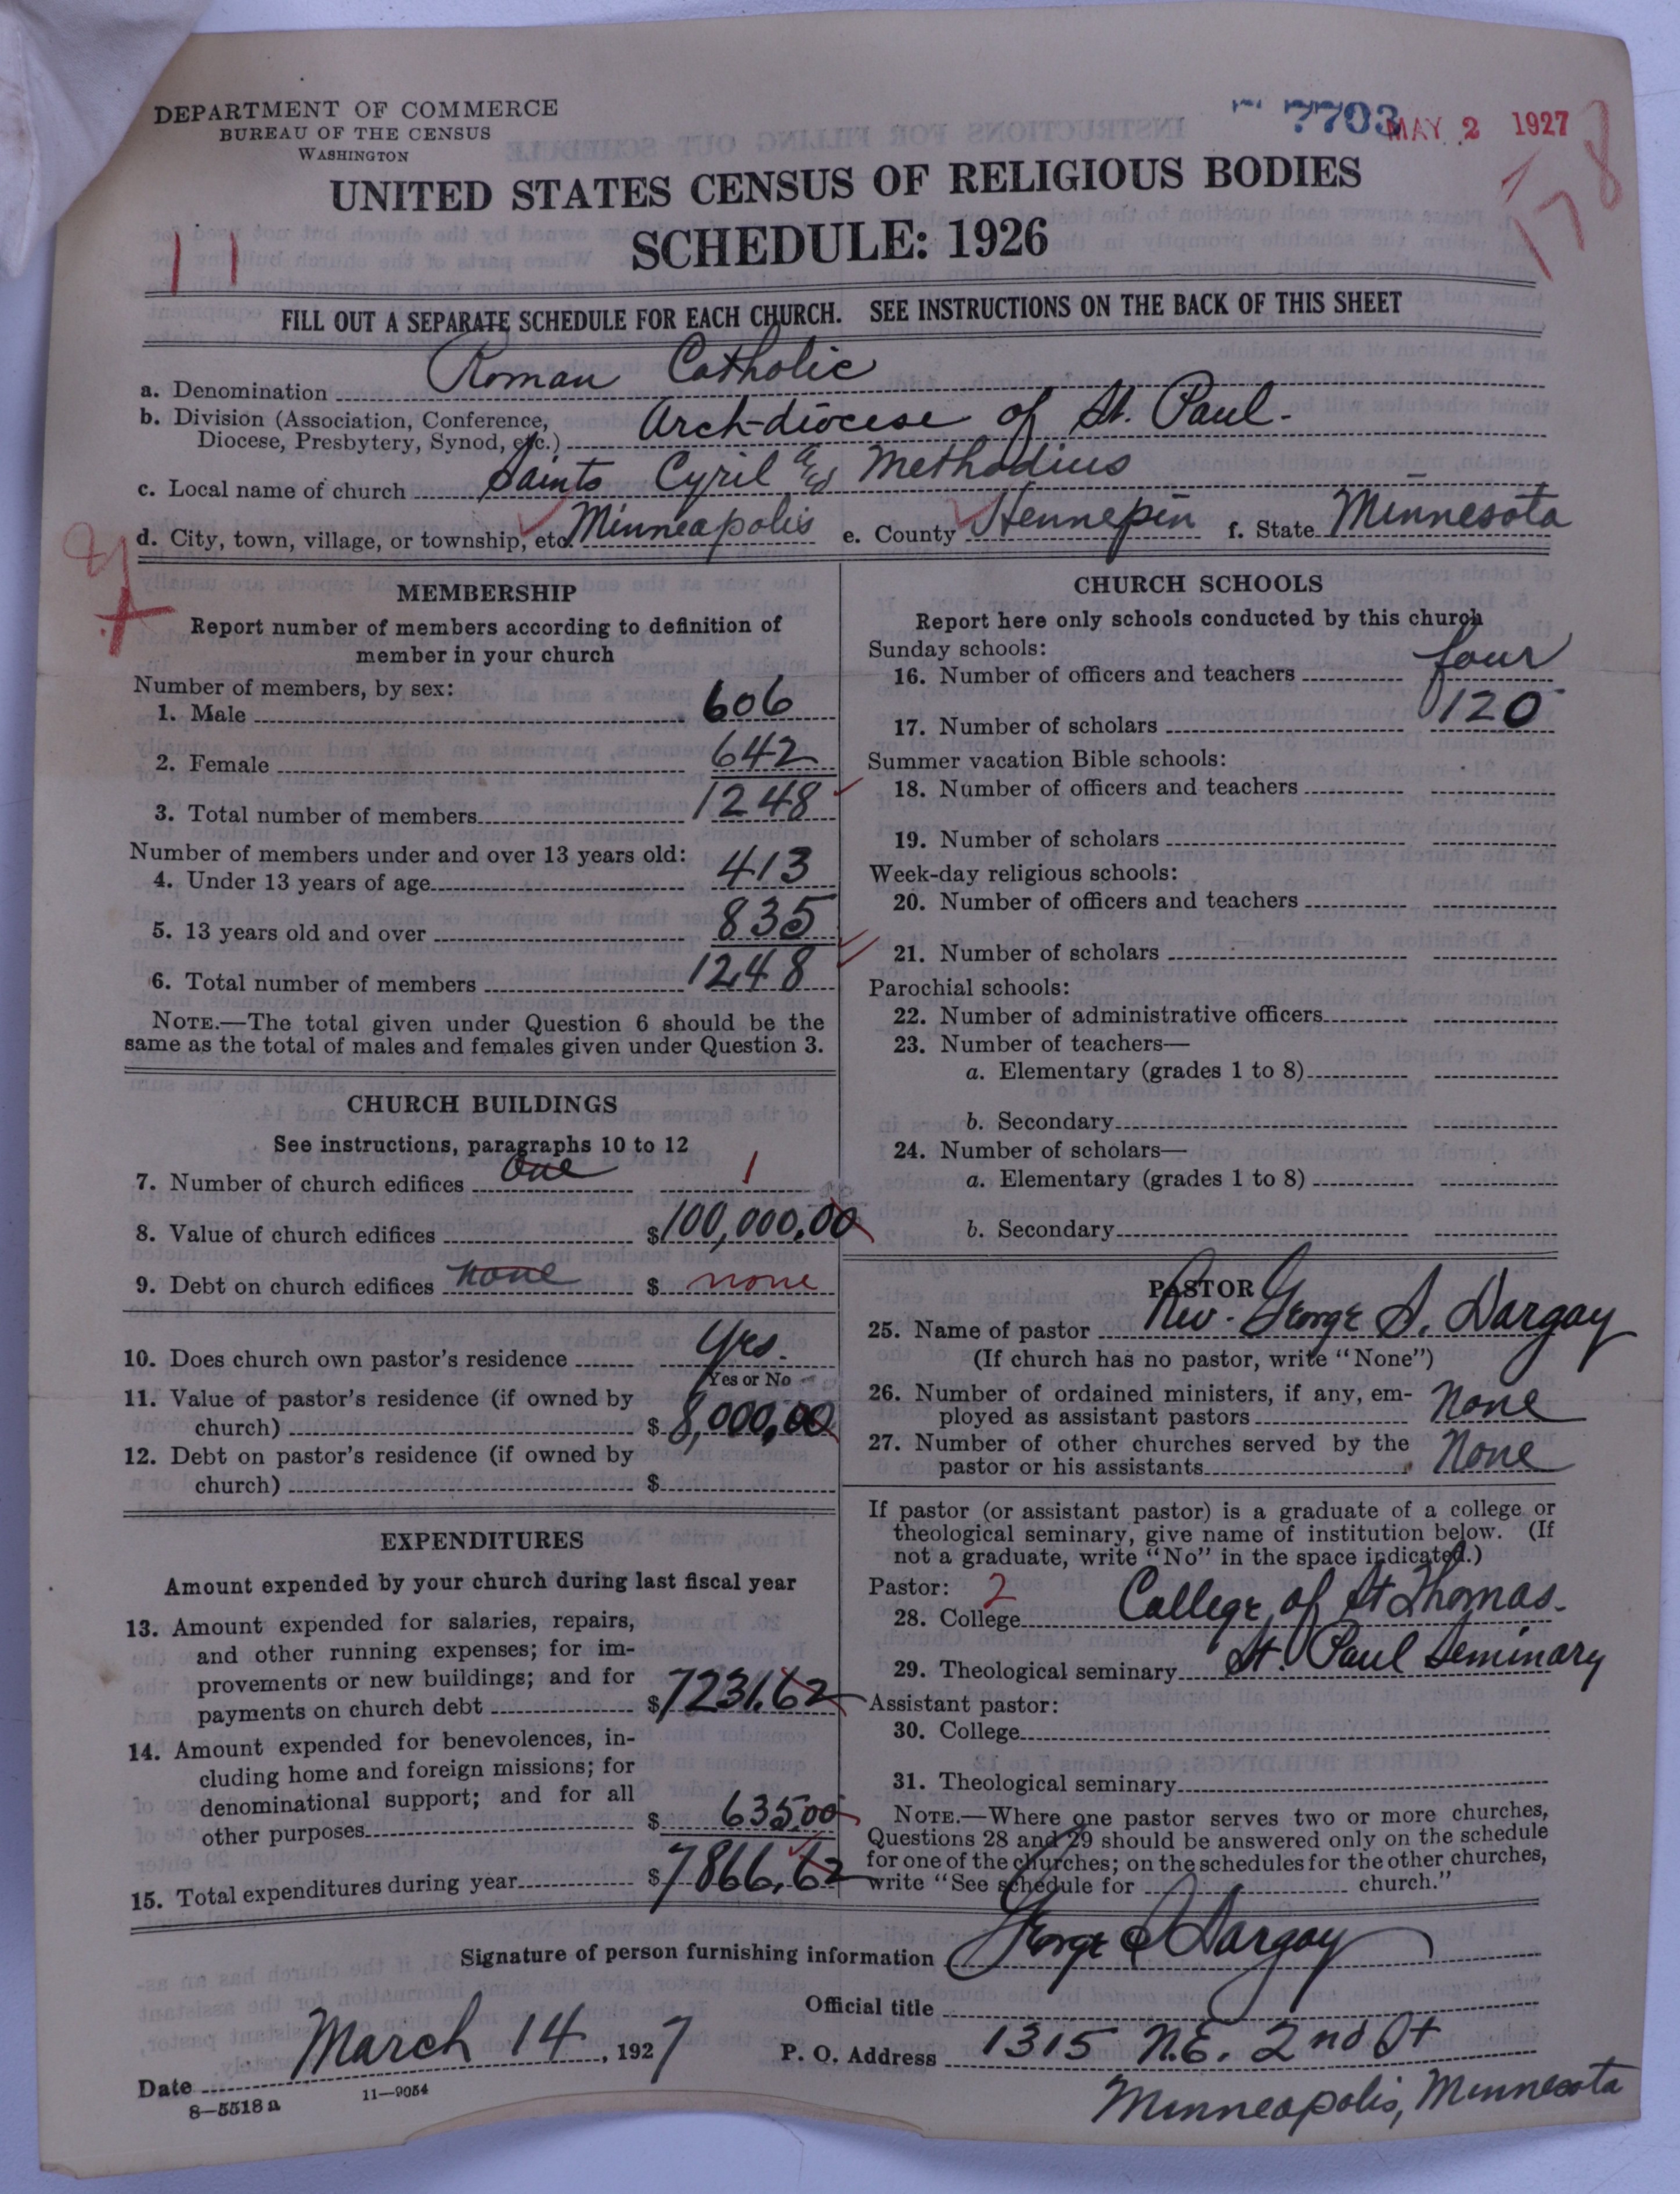 DEPARTMENT OF COMMERCE
BUREAU OF THE CENSUS
WASHINGTON
7703
MAY 2 1927
178
UNITED STATES CENSUS OF RELIGIOUS BODIES
SCHEDULE: 1926
11
FILL OUT A SEPARATE SCHEDULE FOR EACH CHURCH. SEE INSTRUCTIONS ON THE BACK OF THIS SHEET
a. Denomination Roman Catholic
b. Division (Association, Conference,
Diocese, Presbytery, Synod, etc.) Arch-diocese of St. Paul-
c. Local name of church Saints Cyril and Methodius
d. City, town, village, or township, etc. Minneapolis e. County Hennepin f. State Minnesota
MEMBERSHIP
Report number of members according to definition of
member in your church
Number of members, by sex:
1. Male 606
2. Female 642
3. Total number of members 1248
Number of members under and over 13 years old:
4. Under 13 years of age 413
5. 13 years old and over 835
6. Total number of members 1248
NOTE.—The total given under Question 6 should be the
same as the total of males and females given under Question 3.
CHURCH BUILDINGS
See instructions, paragraphs 10 to 12
7. Number of church edifices one 1
8. Value of church edifices $100,000.00
9. Debt on church edifices none $ none
10. Does church own pastor's residence Yes.
Yes or No
11. Value of pastor's residence (if owned by
church) $8,000,00
12. Debt on pastor's residence (if owned by
church) $
EXPENDITURES
Amount expended by your church during last fiscal year
13. Amount expended for salaries, repairs,
and other running expenses; for im-
provements or new buildings; and for
payments on church debt $7231.62
14. Amount expended for benevolences, in-
cluding home and foreign missions; for
denominational support; and for all
other purposes $ 635.00
15. Total expenditures during year $7866.62
CHURCH SCHOOLS
Report here only schools conducted by this church
Sunday schools:
16. Number of officers and teachers four
17. Number of scholars 120
Summer vacation Bible schools:
18. Number of officers and teachers
19. Number of scholars
Week-day religious schools:
20. Number of officers and teachers
21. Number of scholars
Parochial schools:
22. Number of administrative officers
23. Number of teachers—
a. Elementary (grades 1 to 8)
b. Secondary
24. Number of scholars—
a. Elementary (grades 1 to 8)
b. Secondary
PASTOR
25. Name of pastor Rev. George S. Dargay
(If church has no pastor, write "None")
26. Number of ordained ministers, if any, em-
ployed as assistant pastors None
27. Number of other churches served by the
pastor or his assistants None
If pastor (or assistant pastor) is a graduate of a college or
theological seminary, give name of institution below. (If
not a graduate, write "No" in the space indicated.)
Pastor: 2
28. College College of St Thomas.
29. Theological seminary St. Paul Seminary
Assistant pastor:
30. College
31. Theological seminary
NOTE.—Where one pastor serves two or more churches,
Questions 28 and 29 should be answered only on the schedule
for one of the churches; on the schedules for the other churches,
write "See schedule for church."
Signature of person furnishing information George S Dargay
Official title
Date March 14, 1927 P. O. Address 1315 N.E. 2nd St
Minneapolis, Minnesota
8—5518 a 11—9054